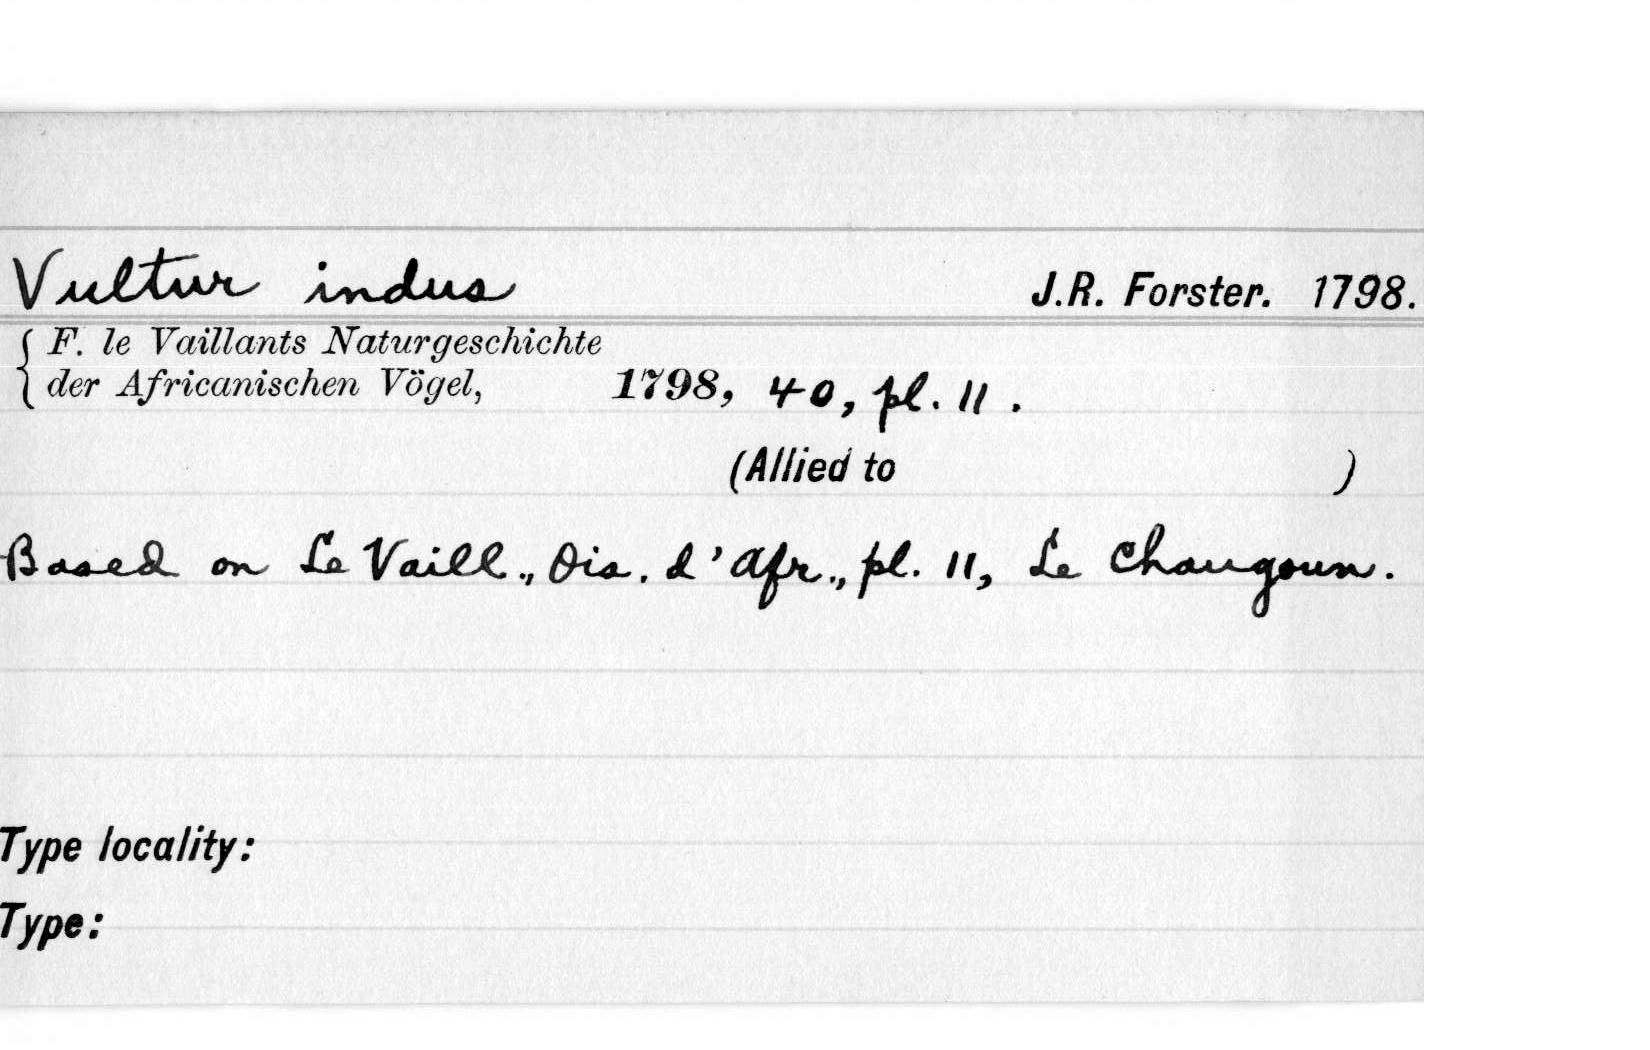 Vultur indus J.R. Forster. 1798.
F. le Vaillants Naturgeschichte
der Africanischen Vögel, 1798, 40, pl. 11.
(Allied to )
Based on Le Vaill., Ois. d'Afr., pl. 11, Le Chaugoun.
Type locality:
Type: